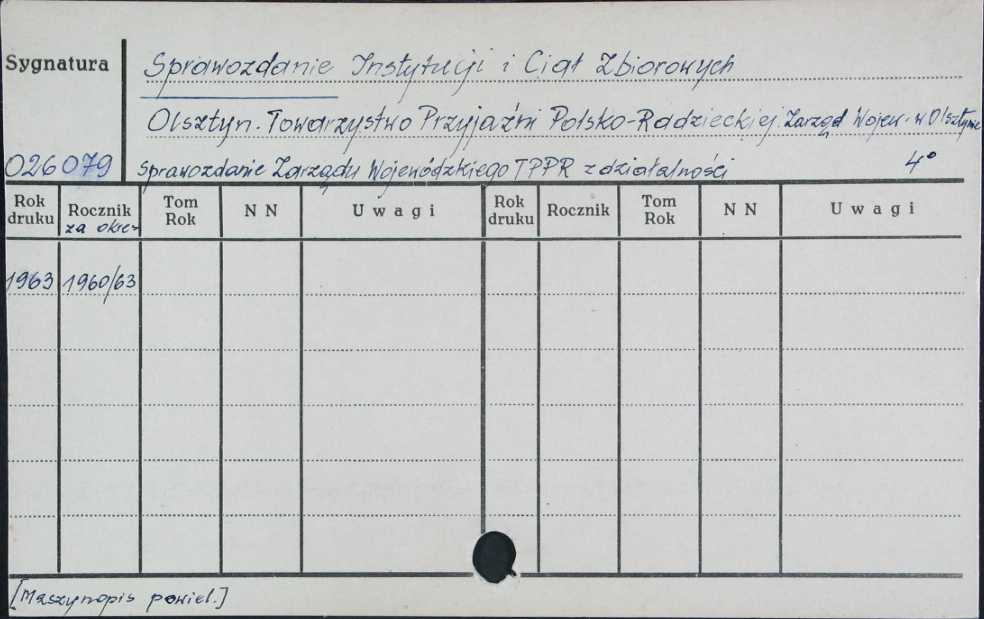 Sygnatura
Sprawozdanie Instytucji i Ciał Zbiorowych
Olsztyn. Towarzystwo Przyjaźni Polsko-Radzieckiej. Zarząd Wojew. w Olsztynie
026079 Sprawozdanie Zarządu Wojewódzkiego TPPR z działalności 4°
Rok druku Rocznik za okres Tom Rok N N Uwagi Rok druku Rocznik Tom Rok N N Uwagi
1963 1960/63
[Maszynopis powiel.]